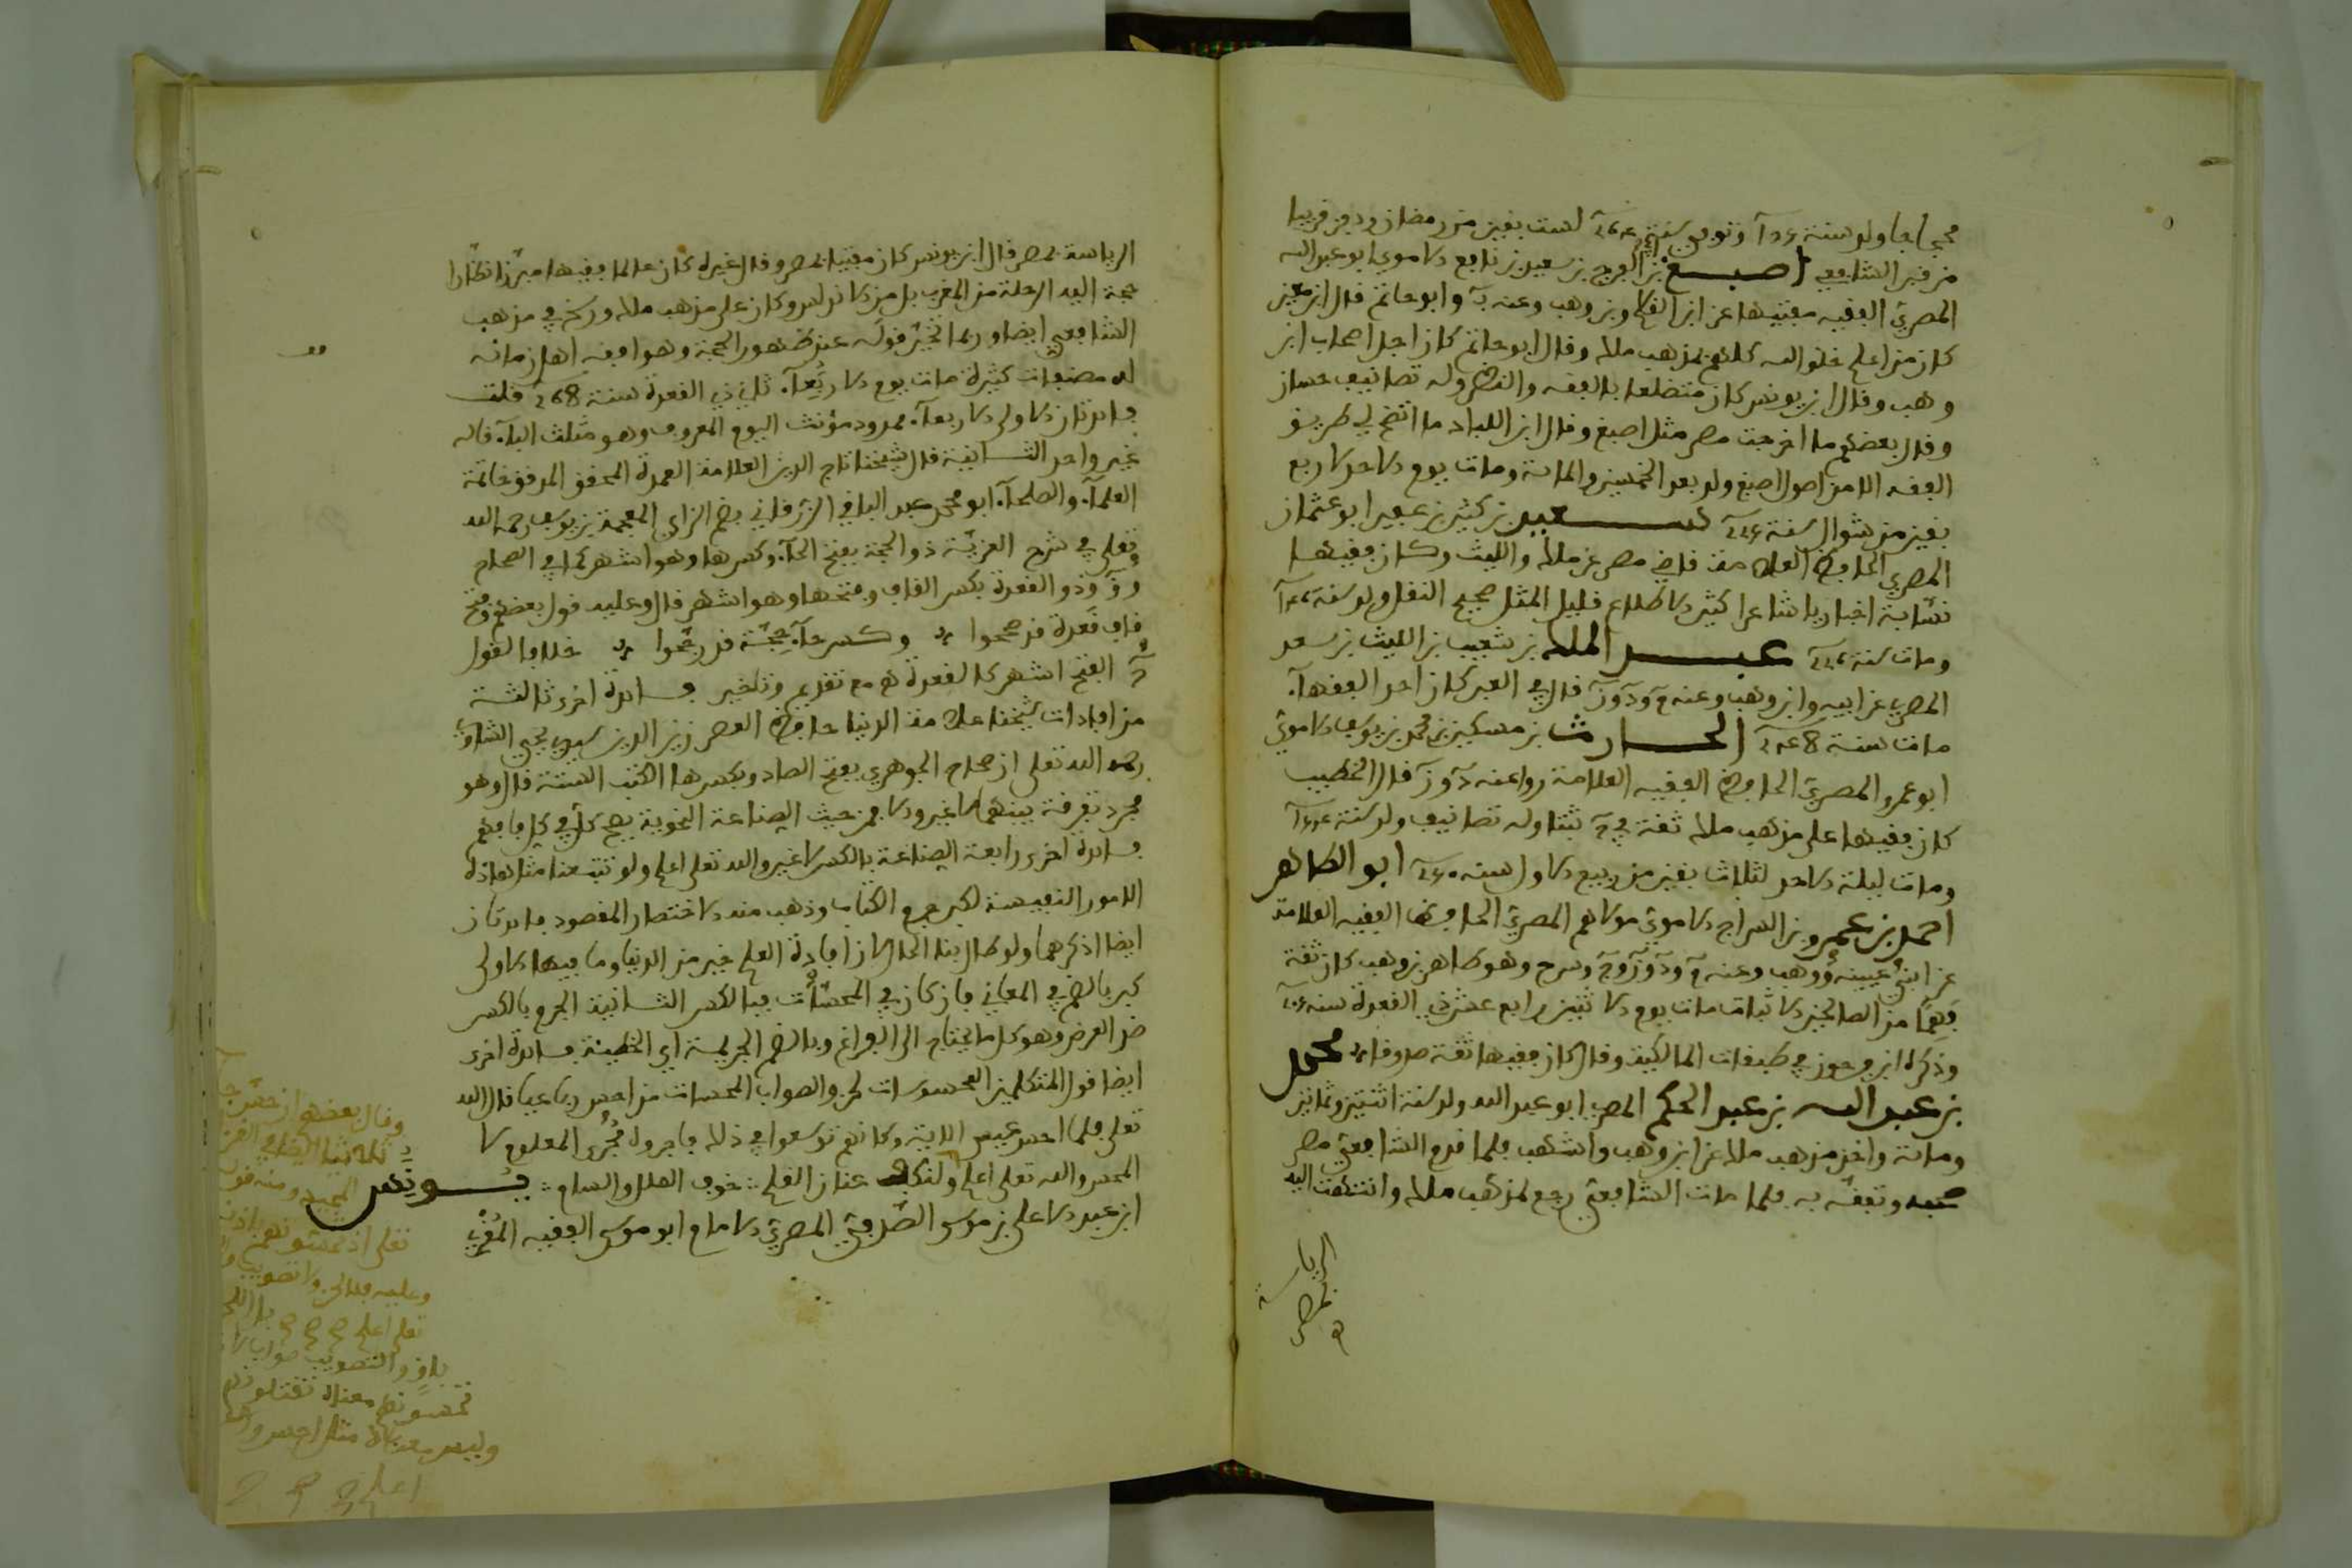 من قبر الشافعي اصبغ بن الفرج بن سعيد بن نافع الاموي ابو عبد الله
المصري الفقيه مفتيها عن ابن القاسم وبن وهب وعنه خ وابو حاتم قال ابن معين
كان من اعلم خلق الله كلهم بمذهب مالك وقال ابو حاتم كان اجل اصحاب ابن
وهب وقال ابن يونس كان متضلعا بالفقه والنظر وله تصانيف حسان
وقال بعضهم ما اخرجت مصر مثل اصبغ وقال ابن اللباد ما انفتح لي طريق
الفقه الا من اصول اصبغ ولد بعد الخمسين والمائة ومات يوم الاحد لاربع
بقين من شوال سنة سعيد بن كثير بن عفير ابو عثمان
المصري الحافظ العلامة قاضي مصر عن مالك والليث وكان فقيها
نسابة اخباريا شاعرا كثير الاطلاع قليل المثل صحيح النقل ولد سنة
ومات سنة عبد الملك بن شعيب بن الليث بن سعد
المصري عن ابيه وابن وهب وعنه م ود ون قال في العبر كان احد الفقهاء
مات سنة 248 الحارث بن مسكين بن محمد بن يوسف الاموي
ابو عمرو المصري الحافظ الفقيه العلامة روا عنه د ون قال الخطيب
كان فقيها على مذهب مالك ثقة في ثبتا وله تصانيف ولد سنة
ومات ليلة الاحد لثلاث بقين من ربيع الاول سنة ابو الطاهر
احمد بن عمرو بن السراج الاموي مولاهم المصري الحافظ الفقيه العلامة
عن ابن عيينة ووهب وعنه م ود ون وسرح وهو طاهر بن وهب كان ثقة
فهما من الصالحين الاثبات مات يوم الاثنين رابع عشر ذي القعدة سنة
وذكره ابن فرحون في طبقات المالكية وقال كان فقيها ثقة صدوقا محمد
بن عبد الله بن عبد الحكم المصري ابو عبد الله ولد سنة اثنين وثمانين
ومائة واخذ مذهب مالك عن ابن وهب واشهب فلما قدم الشافعي مصر
صحبه وتفقه به فلما مات الشافعي رجع لمذهب مالك وانتهت اليه
الرياسة
بمصر
الرياسة بمصر قال ابن يونس كان مفتيا بمصر وقال غيره كان عالما فقيها مبرزا نظارا
حجة اليه الرحلة من المغرب بل من الاندلس وكان على مذهب مالك ورسخ في مذهب
الشافعي ايضا وربما تخير قوله عند ظهور الحجة وهو افقه اهل زمانه
له مصنفات كثيرة مات يوم الاربعاء ثاني ذي القعدة سنة 268 قلت
فائدتان الاولى الاربعاء ممدود مؤنث اليوم المعروف وهو مثلث الباء قاله
غير واحد الثانية قال شيخنا تاج الدين العلامة العمدة المحقق المدقق خاتمة
العلماء والصلحاء ابو محمد عبد الباقي الزرقاني بضم الزاي المعجمة بن يوسف رحمه الله
تعلى في شرح العزية ذو الحجة بفتح الحاء وكسرها وهو اشهر كما في الصحاح
وذو القعدة بكسر القاف وفتحها وهو اشهر قال وعليه قول بعضهم وفتح
قاف قعدة قد صححوا وكسر حاء حجة قد رجحوا خلافا لقول
الفتح اشهر كالقعدة مع تقديم وتاخير فائدة اخرى ثالثة
من افادات شيخنا علامة الدنيا حافظ العصر زين الدين سيدي يحيى الشاوي
رحمه الله تعلى ان صحاح الجوهري بفتح الصاد وبكسرها الكتب الستة قال وهو
مجرد تفرقة بينهما لا غير والا فمن حيث الصناعة النحوية يصح كل في كل فافهم
فائدة اخرى رابعة الصناعة بالكسر لا غير والله تعلى اعلم ولو تتبعنا مثل هاذه
الامور النفيسة لكبر جرم الكتاب وذهب منه الاختصار المقصود فائدتان
ايضا اذكرهما ولو طال بنا الحال لان افادة العلم خير من الدنيا وما فيها الاولى
كبر بالضم في المعاني فان كان في المحسات فبالكسر الثانية الجرم بالكسر
ضد العرض وهو كل ما يحتاج الى الفراغ وبالضم الجريمة اي الخطيئة فائدة اخرى
ايضا قول المتكلمين المحسوسات لحن والصواب المحسات من احس رباعيا قال الله
تعلى فلما احس عيسى الاية وكانهم توسعوا في ذلك فاجروه مجرى المعلوم لا
المحس والله تعلى اعلم ولنكف عنان القلم خوف الملل والسام يونس
ابن عبد الاعلى بن موسى الصدفي المصري الامام ابو موسى الفقيه المقرئ
وقال بعضهم ان حس جاء
ثلاثيا ايضا في القرءان
المجيد ومنه قوله
تعلى اذ تحسونهم باذنه
وعليه فلا لحن ولا تصويب والله
تعلى اعلم صح صح صح
باق والتصويب صواب لان
تحسونهم معناه تقتلونهم
وليس معناه مثل احس والله
اعلم